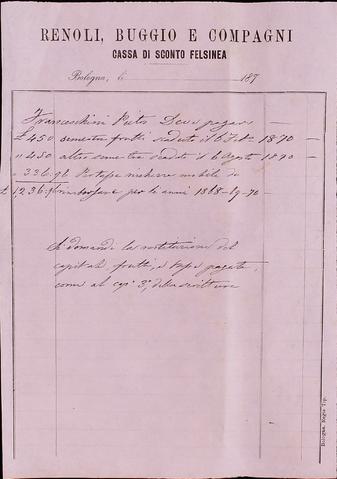 RENOLI, BUGGIO E COMPAGNI
CASSA DI SCONTO FELSINEA
Bologna, li 187
Franceschini Pietro Deve pagare
£ 450 semestre frutti scaduto il 6 Feb. 1870
" 450 altro semestre scaduto il 6 Agosto 1870
" 336.96 mobile di
£ 1,236.96 per le anni 1868-69-70
Si domanda la restituzione del
capitale frutti, e tape pagate,
come al cap. 3º, della scrittura
Bologna, Regia Tip.